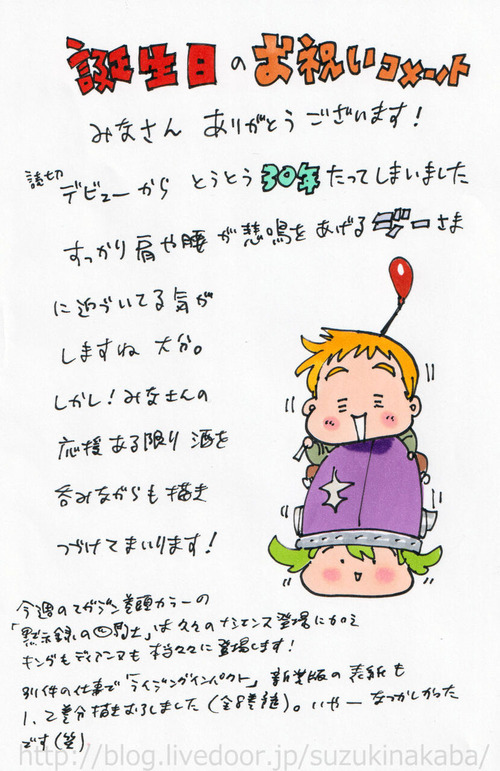 誕生日のお祝いコメント
みなさん ありがとうございます!
読切
デビューから とうとう30年たってしまいました
すっかり肩や腰が悲鳴をあげるジーさま
に近づいてる気が
しますね 大分。
しかし!みなさんの
応援ある限り 酒を
呑みながらも描き
つづけてまいります!
今週のマガジン巻頭カラーの
「黙示録の四騎士」は久々のナシエンス登場に加え
キングもディアンヌも本当久々に登場します!
別件の仕事で「ライジングインパクト」新装版の表紙も
1、2巻分描きおろしました(全8巻)。いやーなつかしかった
です(笑)
http://blog.livedoor.jp/suzukinakaba/